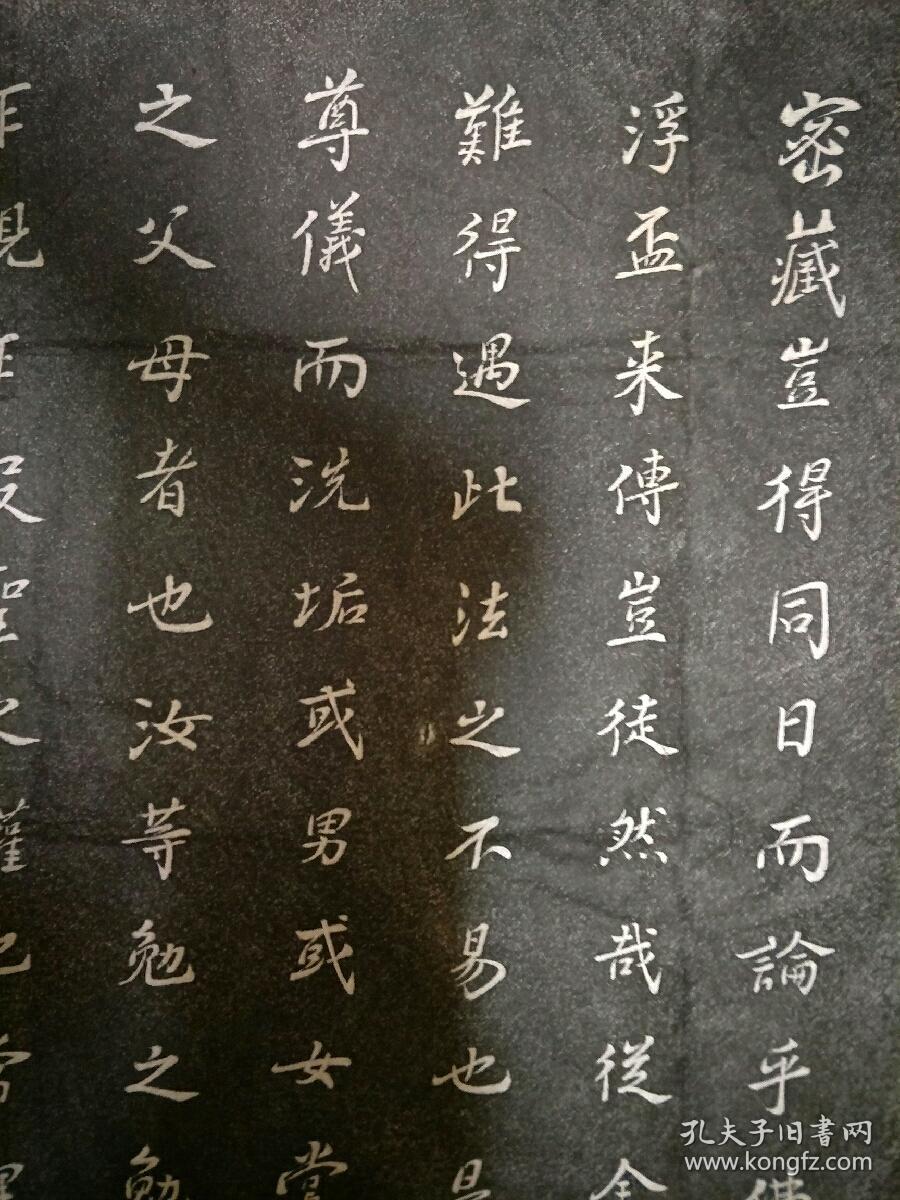 密藏豈得同日而論乎
浮盃来傳豈徒然哉從
難得遇此法之不易也
尊儀而洗垢或男或女
之父母者也汝等勉之勉
孔夫子旧书网
www.kongfz.com